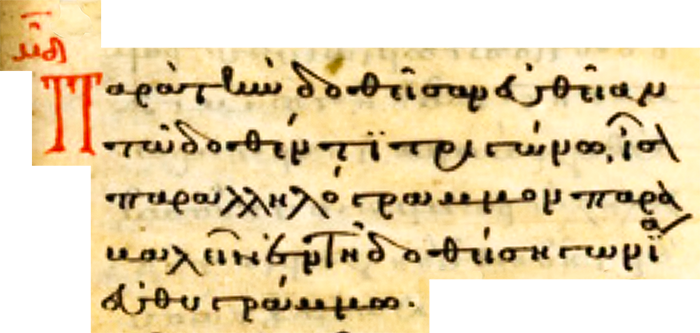 μδ
Παρὰ τὴν δοθεῖσαν εὐθεῖαν
τῶ δοθέντι τριγώνω, ἴσον
παραλληλόγραμμον παρα
βαλεῖν ἐν τῆ δοθείση γωνία
εὐθυγράμμω.